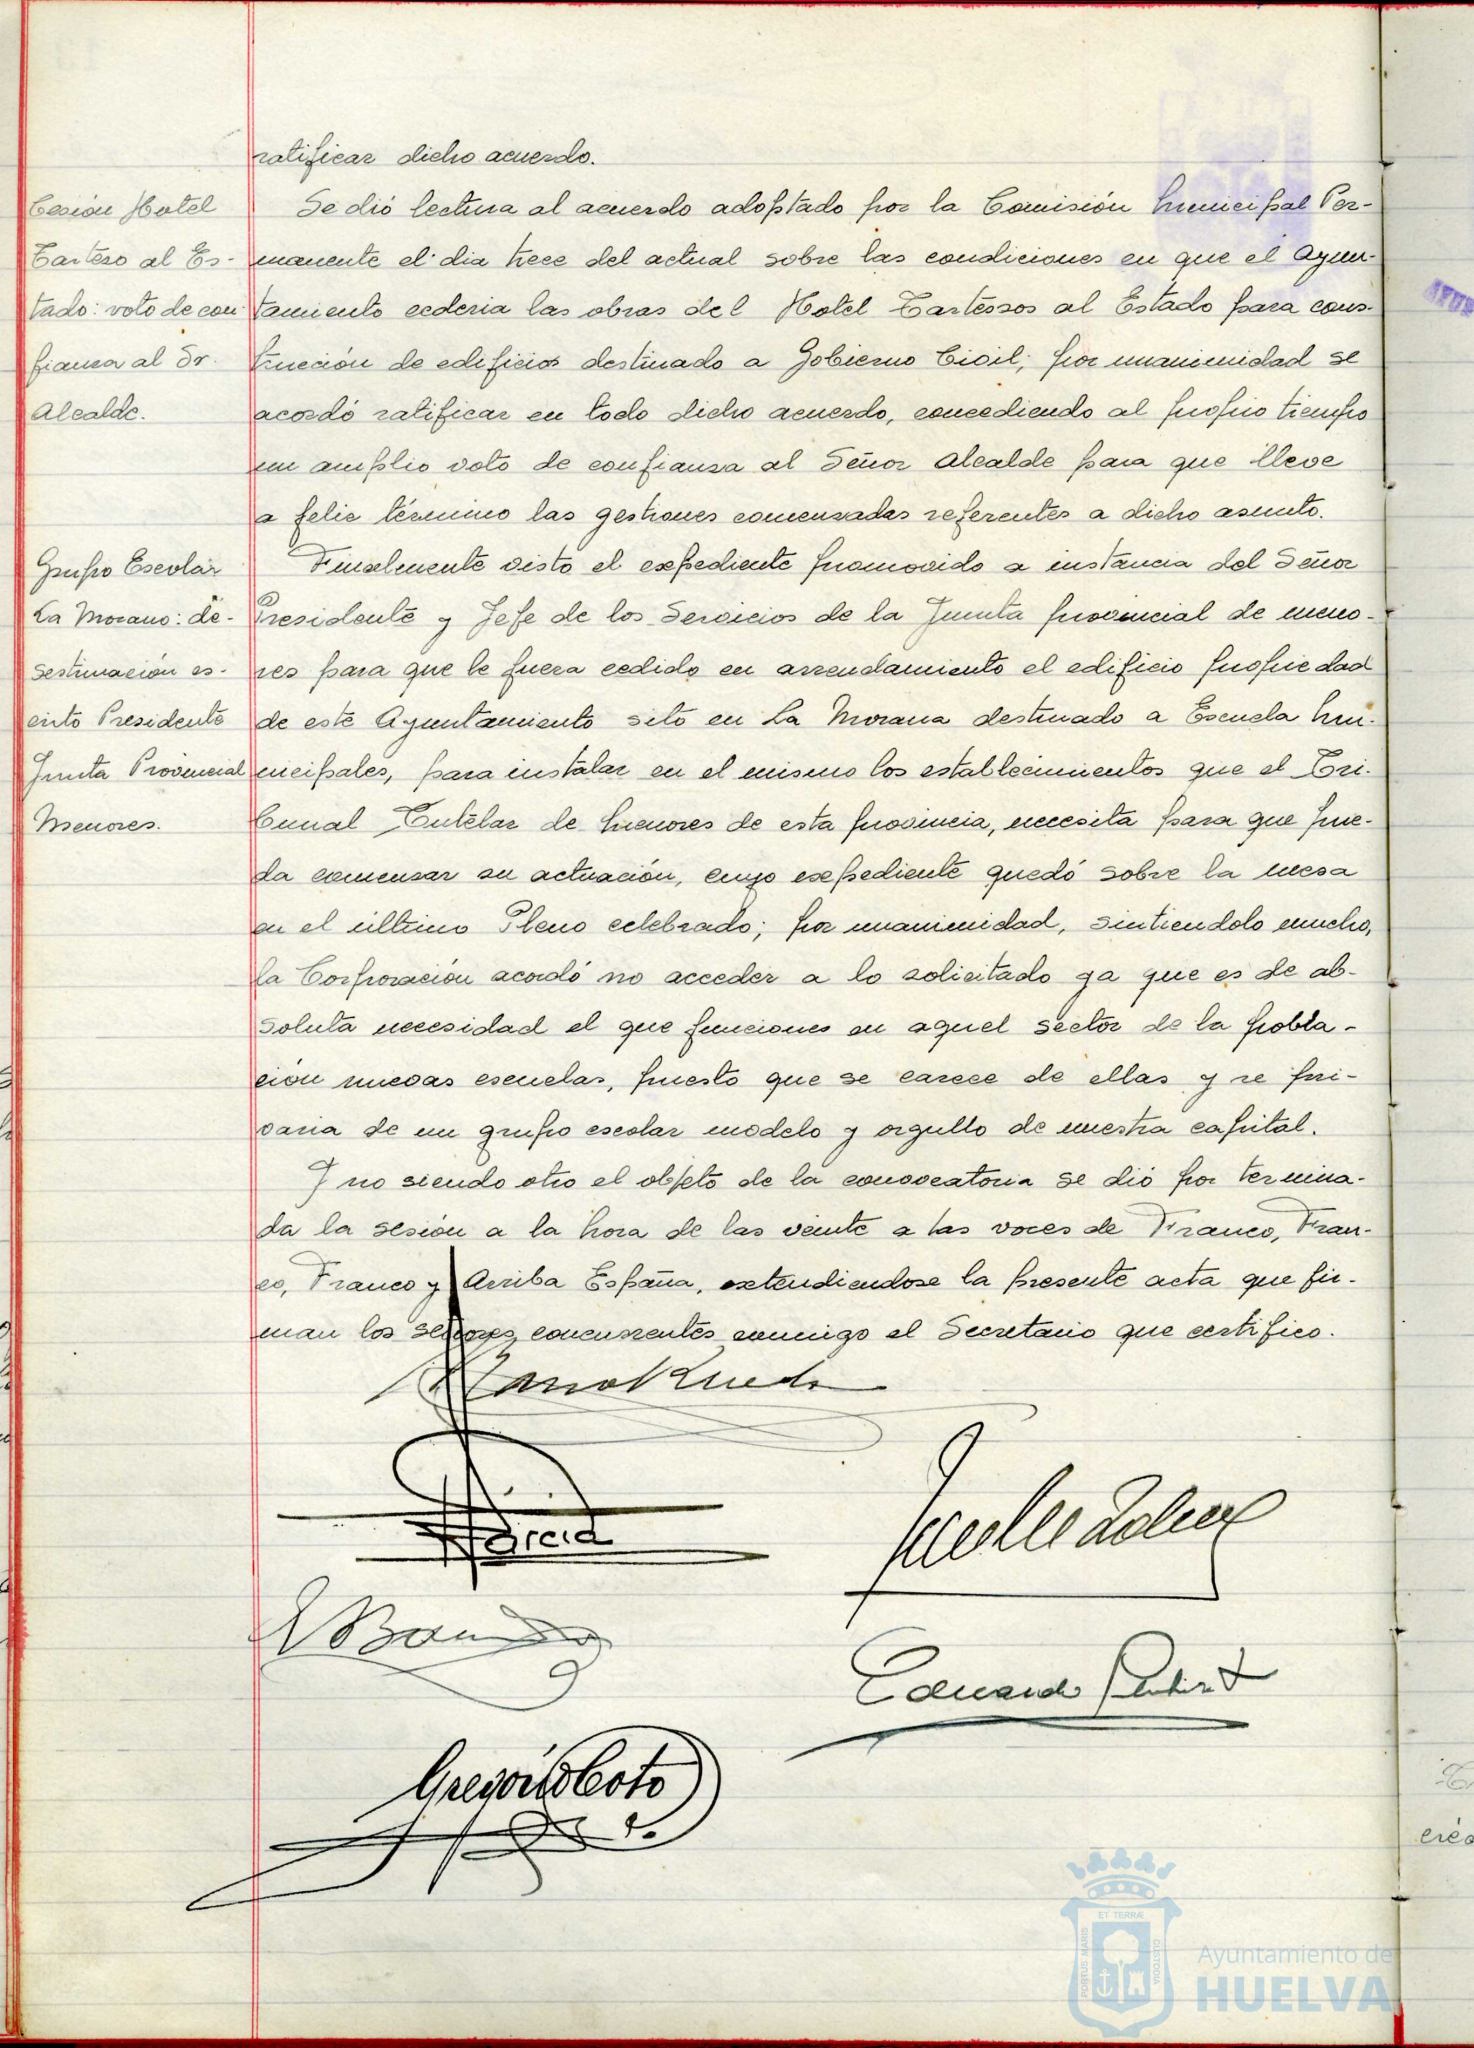 ratificar dicho acuerdo.
Cesión Hotel
Tarteso al Es-
tado: voto de con
fianza al Sr.
Alcalde.
Se dió lectura al acuerdo adoptado por la Comisión Municipal Per-
manente el dia trece del actual sobre las condiciones en que el Ayun-
tamiento cederia las obras del Hotel Tartessos al Estado para cons-
trucción de edificios destinado a Gobierno Civil; por unanimidad se
acordó ratificar en todo dicho acuerdo, concediendo al propio tiempo
un amplio voto de confianza al Señor Alcalde para que lleve
a feliz término las gestiones comenzadas referentes a dicho asunto.
Grupo Escolar
La Morana: de-
sestimación es-
crito Presidente
Junta Provincial
Menores.
Finalmente visto el expediente promovido a instancia del Señor
Presidente y Jefe de los Servicios de la Junta provincial de meno-
res para que le fuera cedido en arrendamiento el edificio propiedad
de este Ayuntamiento sito en La Morana destinado a Escuela Mu-
nicipales, para instalar en el mismo los establecimientos que el Tri-
bunal Tutelar de Menores de esta provincia, necesita para que pue-
da comenzar su actuación, cuyo expediente quedó sobre la mesa
en el último Pleno celebrado; por unanimidad, sintiendolo mucho,
la Corporación acordó no acceder a lo solicitado ya que es de ab-
soluta necesidad el que funciones en aquel sector de la pobla-
ción nuevas escuelas, puesto que se carece de ellas y se pri-
varia de un grupo escolar modelo y orgullo de nuestra capital.
Y no siendo otro el objeto de la convocatoria se dió por termina-
da la sesión a la hora de las veinte a las voces de Franco, Fran-
co, Franco y Arriba España, extendiendose la presente acta que fir-
man los señores concurrentes conmigo el Secretario que certifico.
Garcia
Eduardo
Gregorio Coto
PORTUS MARIS ET TERRÆ CUSTODIA
Ayuntamiento de
HUELVA